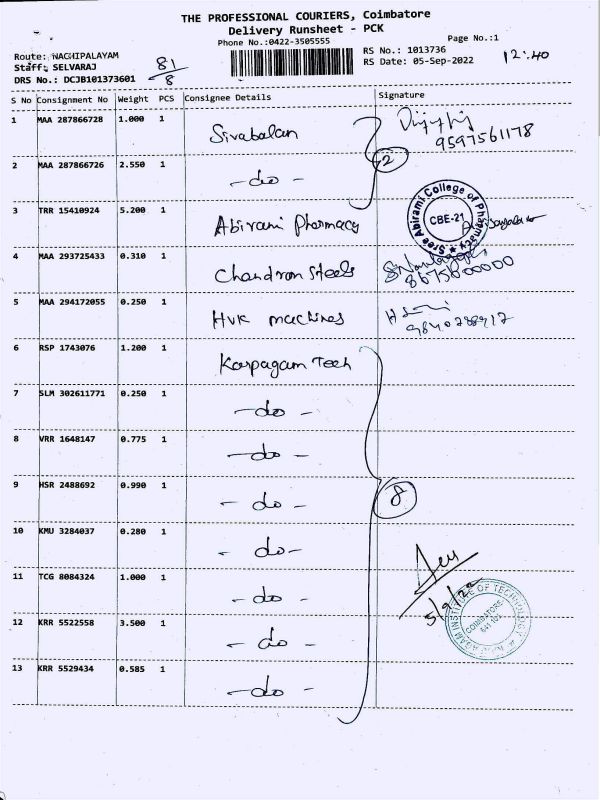 THE PROFESSIONAL COURIERS, Coimbatore
Delivery Runsheet - PCK
Phone No.:0422-3505555
Page No.:1
Route: NACHIPALAYAM
81/8
RS No.: 1013736
12:40
Staff: SELVARAJ
RS Date: 05-Sep-2022
DRS No.: DCJB101373601
S No Consignment No Weight PCS Consignee Details Signature
1 MAA 287866728 1.000 1 Sivabalan
9597561178
2 MAA 287866726 2.550 1 -do- 2
3 TRR 15410924 5.200 1 Abirami Pharmacy
Sree Abirami College of Pharmacy
CBE-21
4 MAA 293725433 0.310 1 Chandran Steels
8675800000
5 MAA 294172055 0.250 1 HVK machines
9840788917
6 RSP 1743076 1.200 1 Karpagam Tech
7 SLM 302611771 0.250 1 -do-
8 VRR 1648147 0.775 1 -do-
9 HSR 2488692 0.990 1 -do- 8
10 KMU 3284037 0.280 1 -do-
11 TCG 8084324 1.000 1 -do-
5/9/22
INSTITUTE OF TECHNOLOGY
COIMBATORE
641 105
12 KRR 5522558 3.500 1 -do-
13 KRR 5529434 0.585 1 -do-